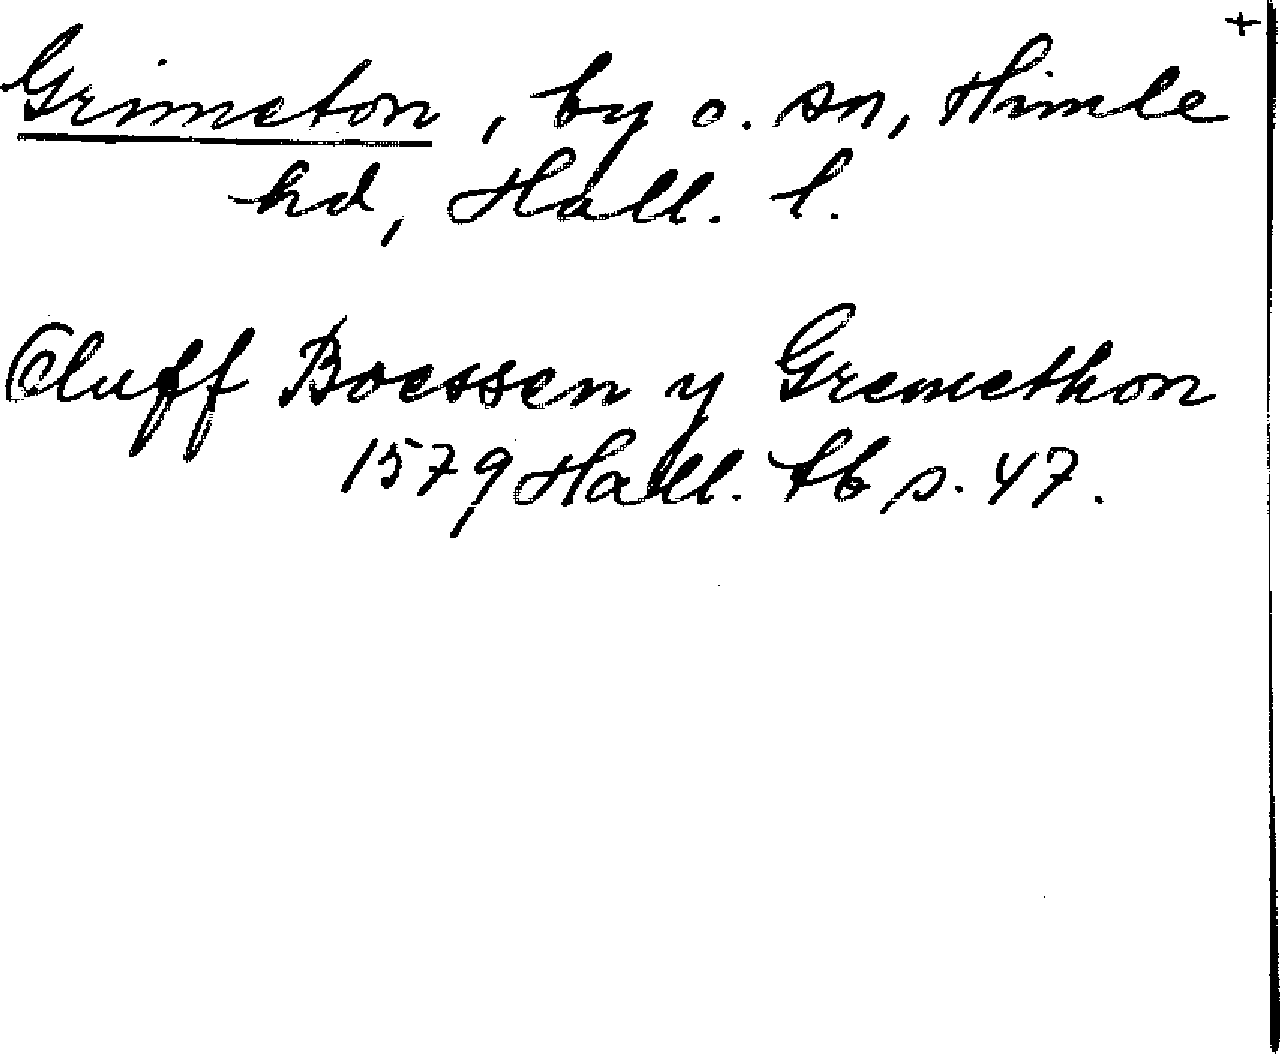 +
Grimeton, by o. sn, Himle
hd, Hall. l.
Oluff Boessen y Gremethon
1579 Hall. tb s. 47.